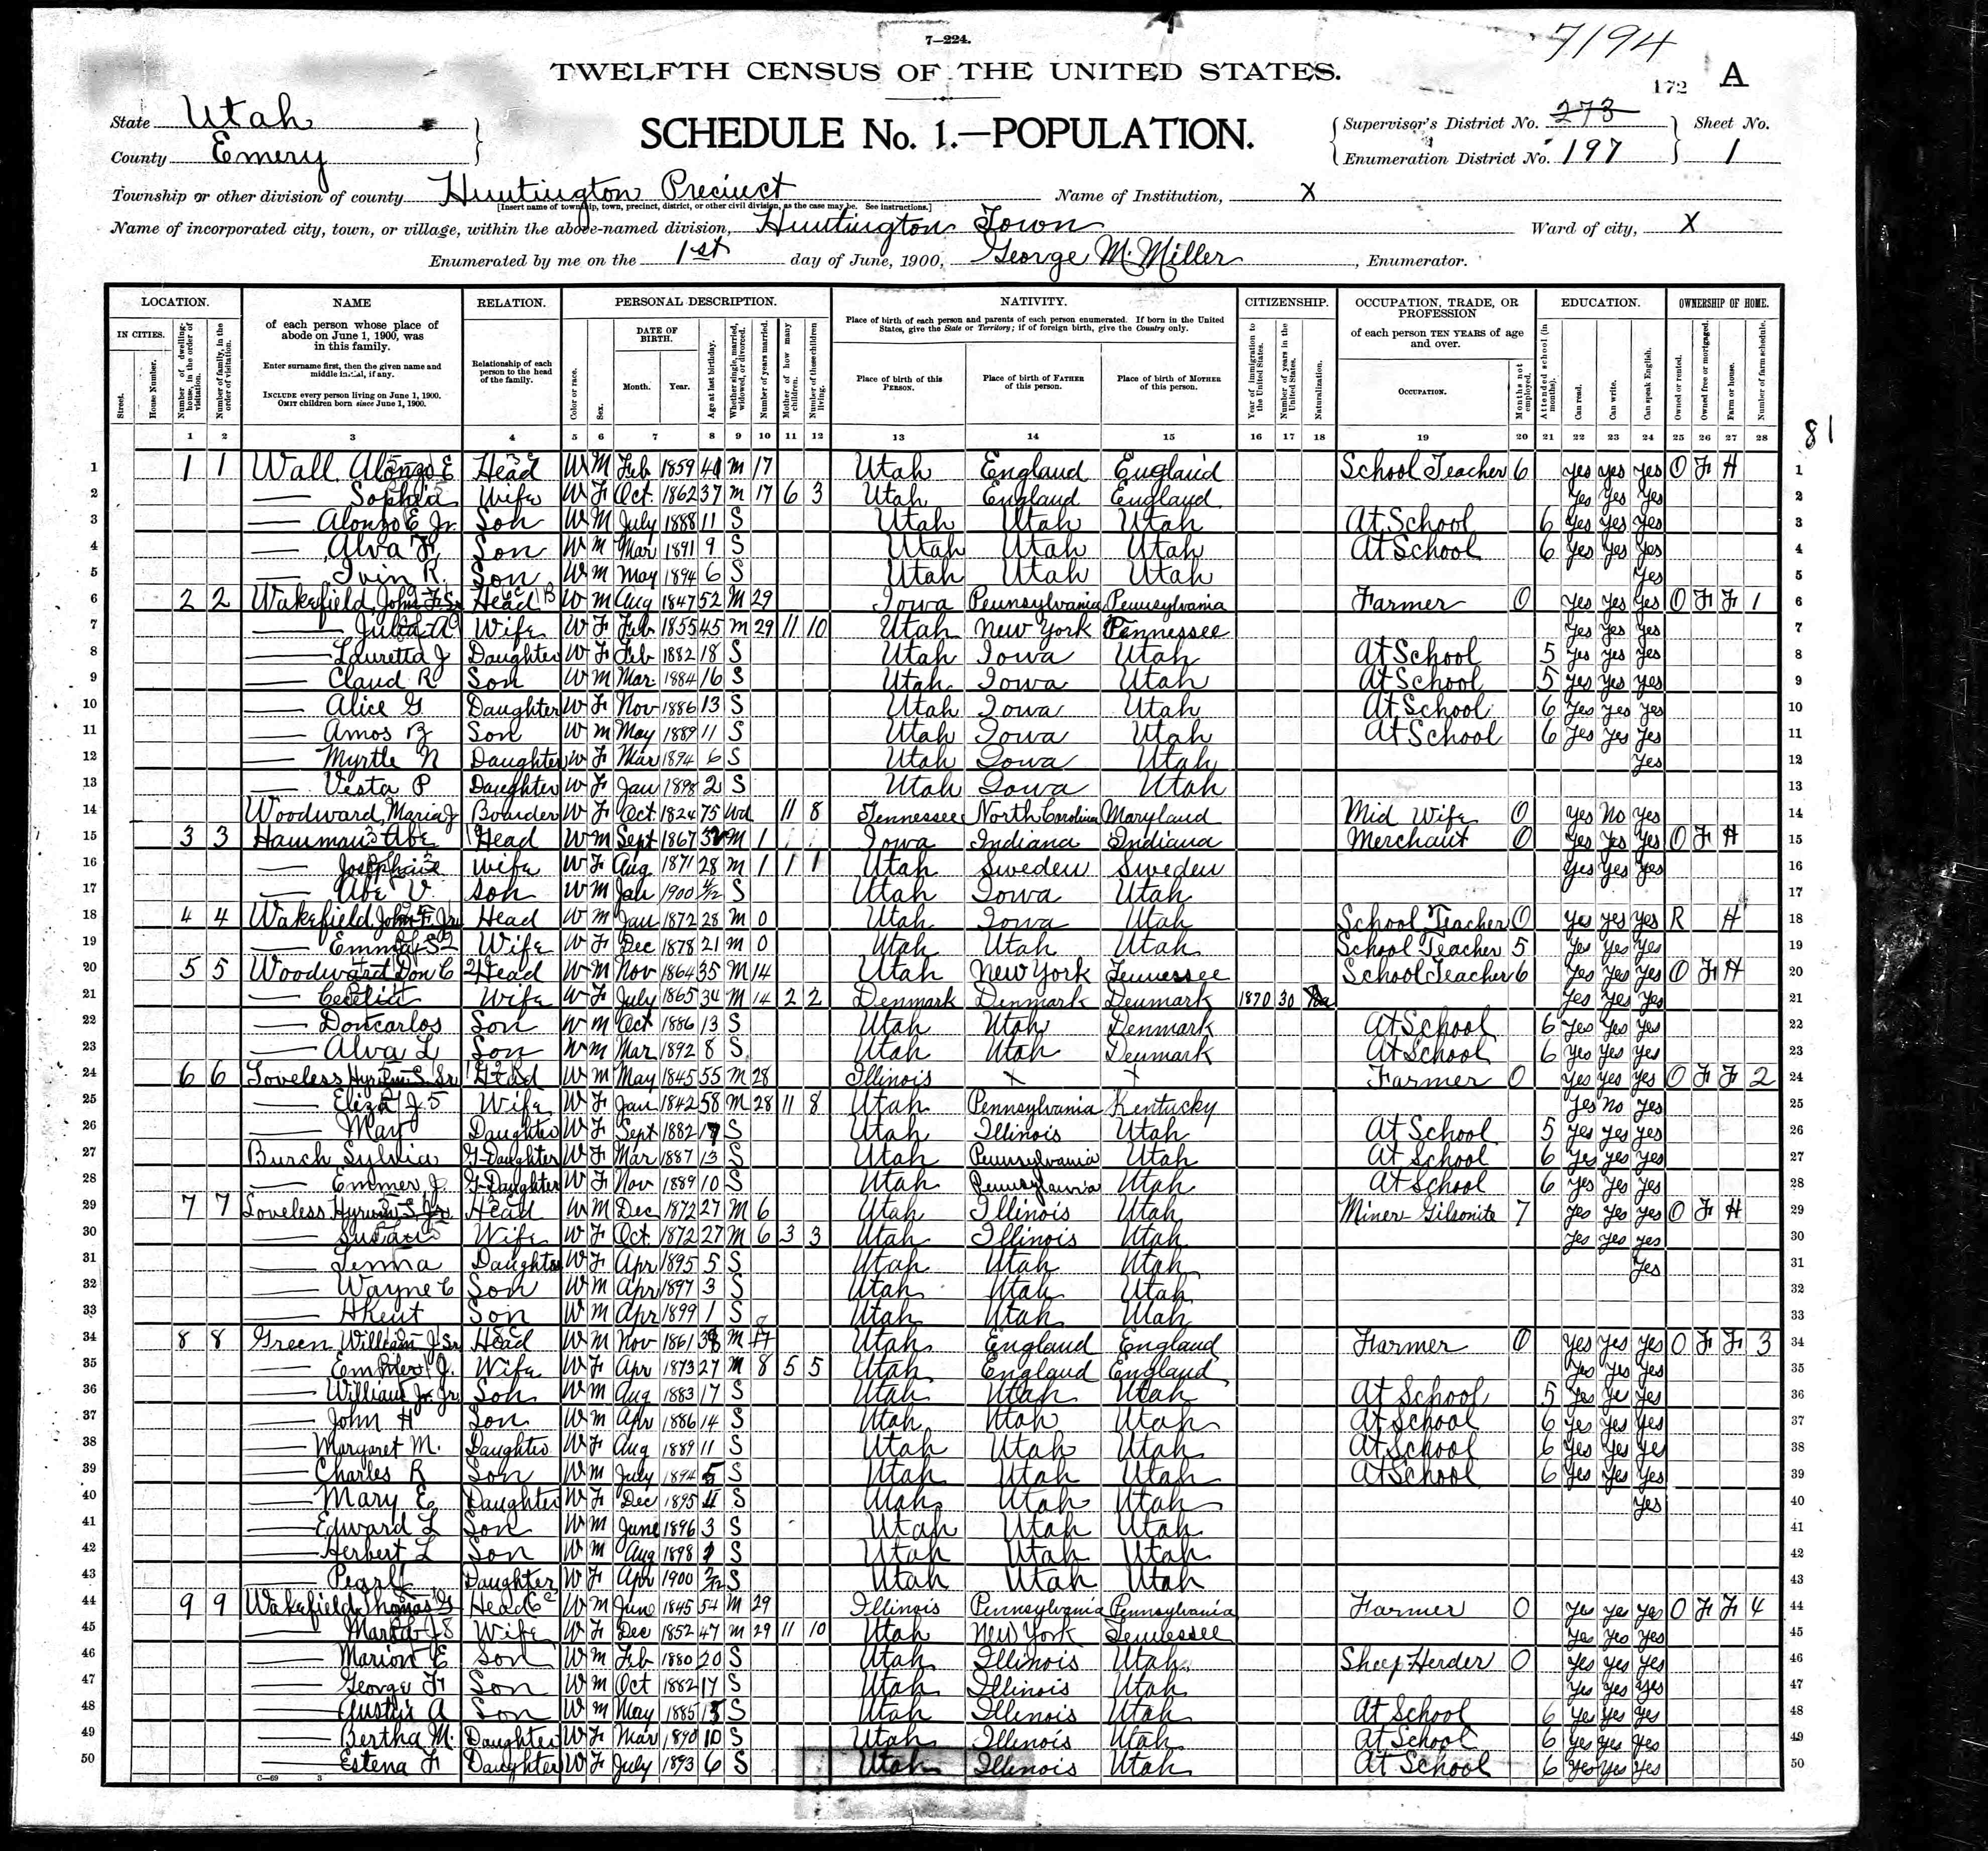 7—224.
7194
TWELFTH CENSUS OF THE UNITED STATES.
172 A
State Utah
County Emery
SCHEDULE No. 1.—POPULATION.
Supervisor's District No. 273
Enumeration District No. 197
Sheet No. 1
Township or other division of county Huntington Precinct
[Insert name of township, town, precinct, district, or other civil division, as the case may be. See instructions.]
Name of Institution, X
Name of incorporated city, town, or village, within the above-named division, Huntington Town
Ward of city, X
Enumerated by me on the 1st day of June, 1900, George M. Miller, Enumerator.
81
LOCATION. NAME RELATION. PERSONAL DESCRIPTION. NATIVITY. CITIZENSHIP. OCCUPATION, TRADE, OR PROFESSION EDUCATION. OWNERSHIP OF HOME.
IN CITIES.
Street.
House Number.
Number of dwelling-house, in the order of visitation.
Number of family, in the order of visitation.
of each person whose place of abode on June 1, 1900, was in this family.
Enter surname first, then the given name and middle initial, if any.
INCLUDE every person living on June 1, 1900. OMIT children born since June 1, 1900.
Relationship of each person to the head of the family.
Color or race.
Sex.
DATE OF BIRTH.
Month. Year.
Age at last birthday.
Whether single, married, widowed, or divorced.
Number of years married.
Mother of how many children.
Number of these children living.
Place of birth of each person and parents of each person enumerated. If born in the United States, give the State or Territory; if of foreign birth, give the Country only.
Place of birth of this PERSON.
Place of birth of FATHER of this person.
Place of birth of MOTHER of this person.
Year of immigration to the United States.
Number of years in the United States.
Naturalization.
of each person TEN YEARS of age and over.
OCCUPATION.
Months not employed.
Attended school (in months).
Can read.
Can write.
Can speak English.
Owned or rented.
Owned free or mortgaged.
Farm or house.
Number of farm schedule.
1 2 3 4 5 6 7 8 9 10 11 12 13 14 15 16 17 18 19 20 21 22 23 24 25 26 27 28
1 1 1 Wall Alonzo E Head W M Feb 1859 41 M 17 Utah England England School Teacher 6 yes yes yes O F H 1
2 — Sophia Wife W F Oct. 1862 37 M 17 6 3 Utah England England Yes Yes Yes 2
3 — Alonzo E Jr. Son W M July 1888 11 S Utah Utah Utah At School 6 Yes Yes Yes 3
4 — Alva Son W M Mar 1891 9 S Utah Utah Utah At School 6 Yes Yes Yes 4
5 — Ivin R. Son W M May 1894 6 S Utah Utah Utah Yes 5
6 2 2 Wakefield, John F. Sr Head W M Aug 1847 52 M 29 Iowa Pennsylvania Pennsylvania Farmer 0 yes yes yes O F F 1 6
7 — Julia A Wife W F Feb 1855 45 M 29 11 10 Utah New York Tennessee Yes Yes Yes 7
8 — Lauretta J Daughter W F Feb 1882 18 S Utah Iowa Utah At School 5 yes yes yes 8
9 — Claud R Son W M Mar. 1884 16 S Utah Iowa Utah At School 5 yes yes yes 9
10 — Alice G. Daughter W F Nov 1886 13 S Utah Iowa Utah At School 6 Yes yes yes 10
11 — Amos Son W M May 1889 11 S Utah Iowa Utah At School 6 Yes Yes Yes 11
12 — Myrtle N Daughter W F Mar 1894 6 S Utah Iowa Utah Yes 12
13 — Vesta P Daughter W F Jan 1898 2 S Utah Iowa Utah 13
14 Woodward, Maria J Boarder W F Oct. 1824 75 Wd 11 8 Tennessee North Carolina Maryland Mid Wife 0 yes No yes 14
15 3 3 Abe Head W M Sept 1867 32 M 1 Iowa Indiana Indiana Merchant 0 Yes Yes Yes O F H 15
16 — Josephine Wife W F Aug 1871 28 M 1 1 1 Utah Sweden Sweden Yes Yes Yes 16
17 — Abe V Son W M Jan 1900 S Utah Iowa Utah 17
18 4 4 Wakefield John F. Jr Head W M Jan 1872 28 M 0 Utah Iowa Utah School Teacher 0 Yes yes yes R H 18
19 — Emma S Wife W F Dec 1878 21 M 0 Utah Utah Utah School Teacher 5 Yes Yes Yes 19
20 5 5 Woodward Don C Head W M Nov 1864 35 M 14 Utah New York Tennessee School Teacher 6 Yes Yes Yes O F H 20
21 — Cecelia Wife W F July 1865 34 M 14 2 2 Denmark Denmark Denmark 1870 30 Na Yes Yes Yes 21
22 — Doncarlos Son W M Oct 1886 13 S Utah Utah Denmark At School 6 Yes Yes Yes 22
23 — Alva L Son W M Mar 1892 8 S Utah Utah Denmark At School 6 yes Yes yes 23
24 6 6 Loveless Hyrum S. Sr Head W M May 1845 55 M 28 Illinois X X Farmer 0 Yes yes yes O F F 2 24
25 — Eliza J. Wife W F Jan 1842 58 M 28 11 8 Utah Pennsylvania Kentucky Yes No Yes 25
26 — May Daughter W F Sept 1882 17 S Utah Illinois Utah At School 5 Yes yes yes 26
27 Burch Sylvia G-Daughter W F Mar 1887 13 S Utah Pennsylvania Utah At School 6 Yes yes yes 27
28 — Emmer J. G-Daughter W F Nov 1889 10 S Utah Pennsylvania Utah At School 6 Yes Yes Yes 28
29 7 7 Loveless Hyrum S Jr. Head W M Dec 1872 27 M 6 Utah Illinois Utah Miner Gilsonite 7 Yes Yes Yes O F H 29
30 — Susan Wife W F Oct 1872 27 M 6 3 3 Utah Illinois Utah Yes yes yes 30
31 — Daughter W F Apr 1895 5 S Utah Utah Utah Yes 31
32 — Wayne C Son W M Apr 1897 3 S Utah Utah Utah 32
33 — Son W M Apr 1899 1 S Utah Utah Utah 33
34 8 8 Green William J Sr Head W M Nov 1861 38 M Utah England England Farmer 0 Yes Yes Yes O F F 3 34
35 — J. Wife W F Apr 1873 27 M 8 5 5 Utah England England Yes Yes Yes 35
36 — William Jr Son W M Aug 1883 17 S Utah Utah Utah At School 5 Yes Ye Yes 36
37 — John H Son W M Apr 1886 14 S Utah Utah Utah At School 6 Yes Yes Yes 37
38 — Margaret M. Daughter W F Aug 1889 11 S Utah Utah Utah At School 6 Yes Yes Ye 38
39 — Charles R Son W M July 1894 5 S Utah Utah Utah At School 6 Yes Yes Yes 39
40 — Mary E Daughter W F Dec 1895 4 S Utah Utah Utah Yes 40
41 — Edward L Son W M June 1896 3 S Utah Utah Utah 41
42 — Herbert L Son W M Aug 1898 S Utah Utah Utah 42
43 — Pearl Daughter W F Apr 1900 2/12 S Utah Utah Utah 43
44 9 9 Wakefield Thomas Head W M June 1845 54 M 29 Illinois Pennsylvania Pennsylvania Farmer 0 Yes Yes Yes O F F 4 44
45 — J Wife W F Dec 1852 47 M 29 11 10 Utah New York Tennessee Yes Yes Yes 45
46 — Marion E Son W M Feb 1880 20 S Utah Illinois Utah Sheep Herder 0 Yes Yes Yes 46
47 — George F Son W M Oct 1882 17 S Utah Illinois Utah Yes Yes Yes 47
48 — Austin A Son W M May 1885 15 S Utah Illinois Utah At School 6 Yes Yes Yes 48
49 — Bertha M. Daughter W F Mar 1890 10 S Utah Illinois Utah At School 6 Yes Yes Yes 49
50 — Estena F Daughter W F July 1893 6 S Utah Illinois Utah At School 6 Yes Yes Yes 50
C—69 3